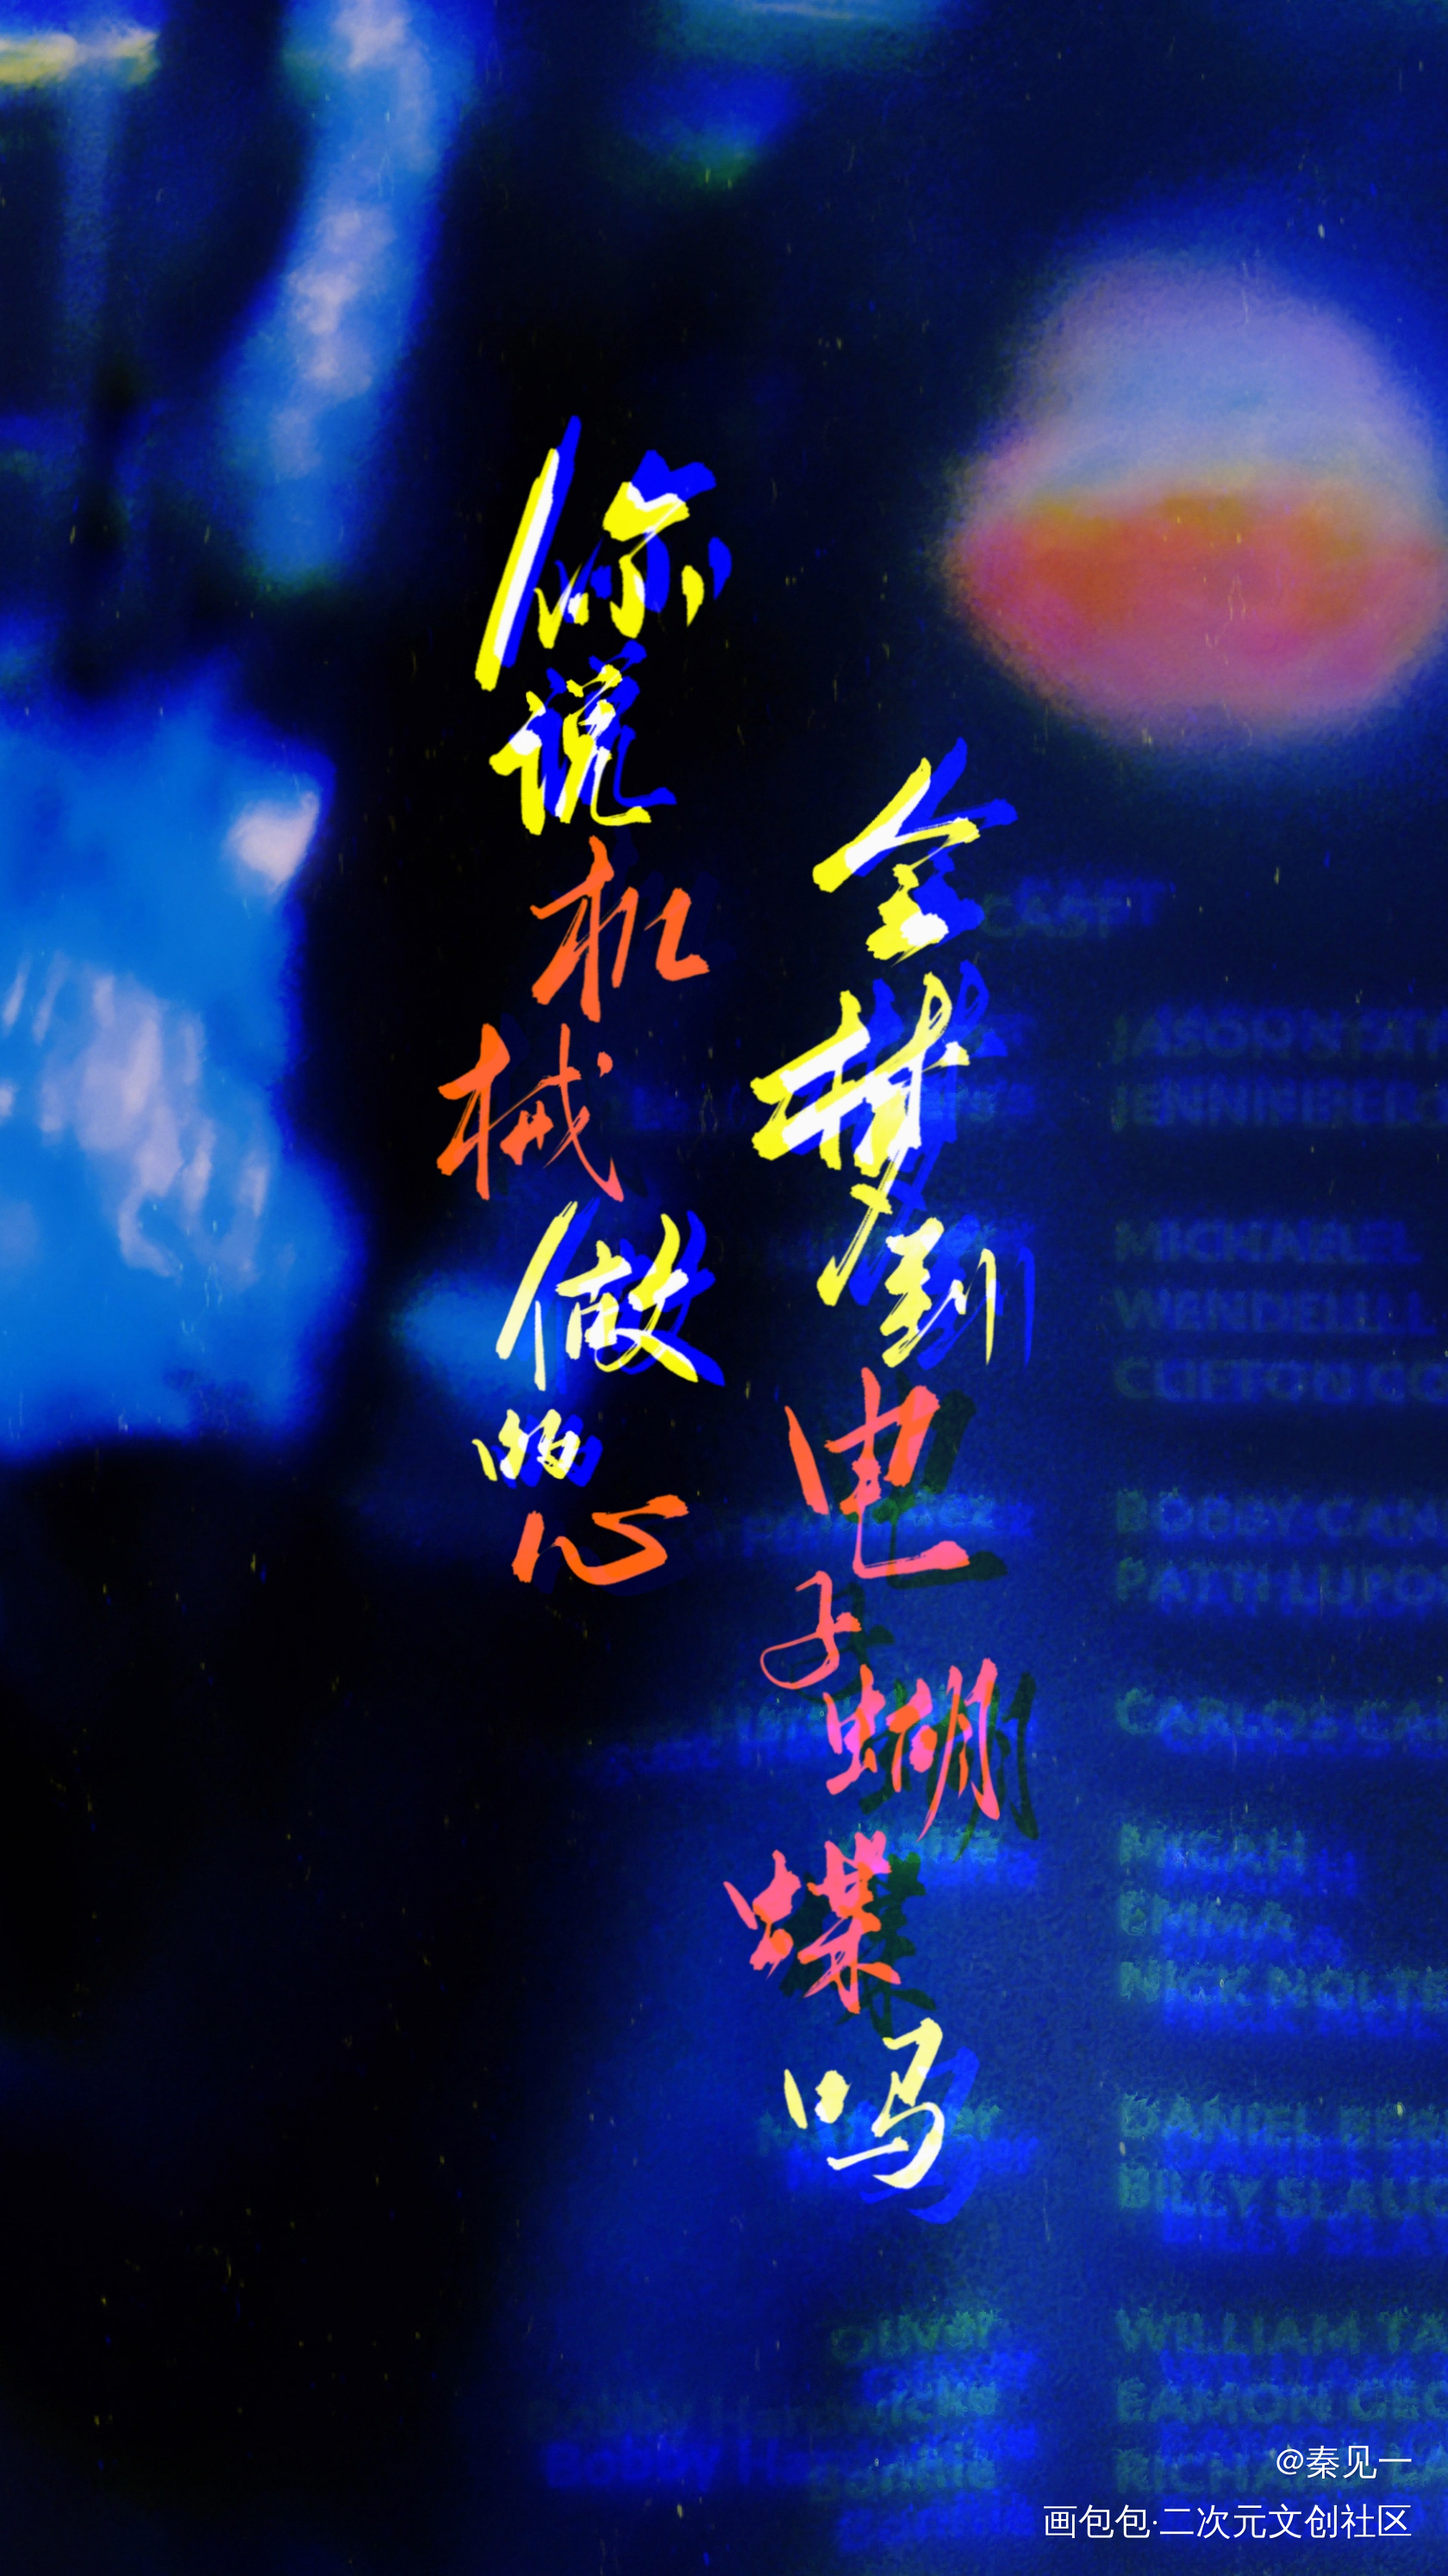 你说机械做的心
会梦到电子蝴蝶吗
CAST
JASON STAT
JENNIFER LO
MICHAEL
WENDELL
CLIFTON CO
BOBBY CAN
PATTI LUPO
CARLOS CA
MICAH
EMMA
NICK NOLTE
DANIEL BER
BILLY SLAUG
Oliver WILLIAM TA
EAMON GEO
Bobby RICHA
@秦见一
画包包·二次元文创社区